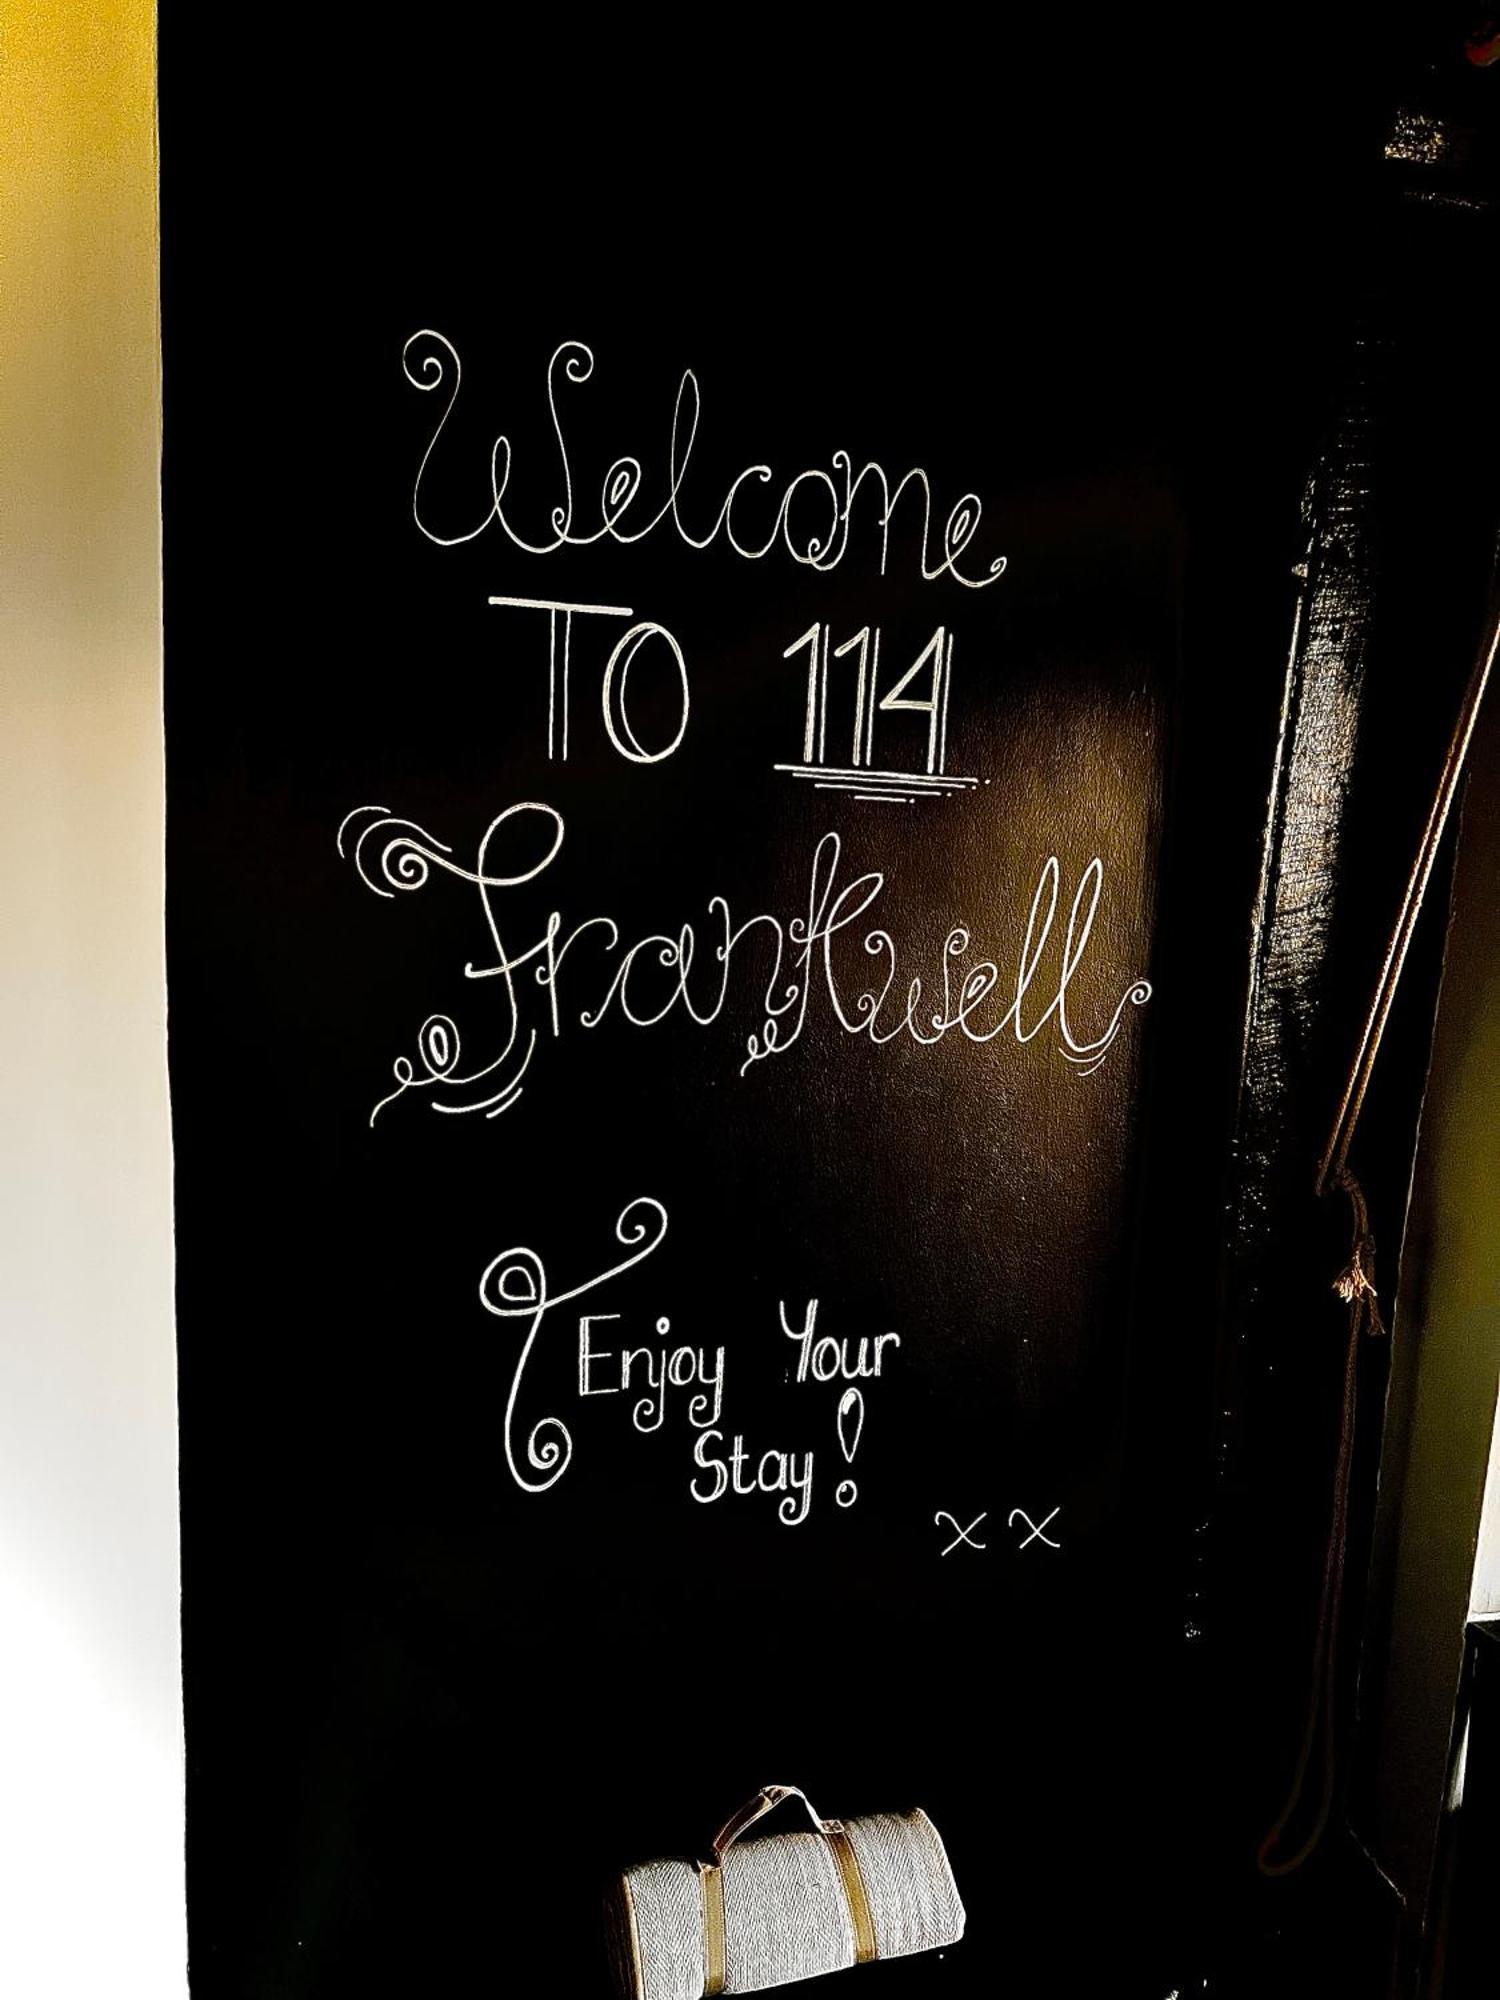 Welcome
TO 114
Frankwell
Enjoy Your
Stay!
x x